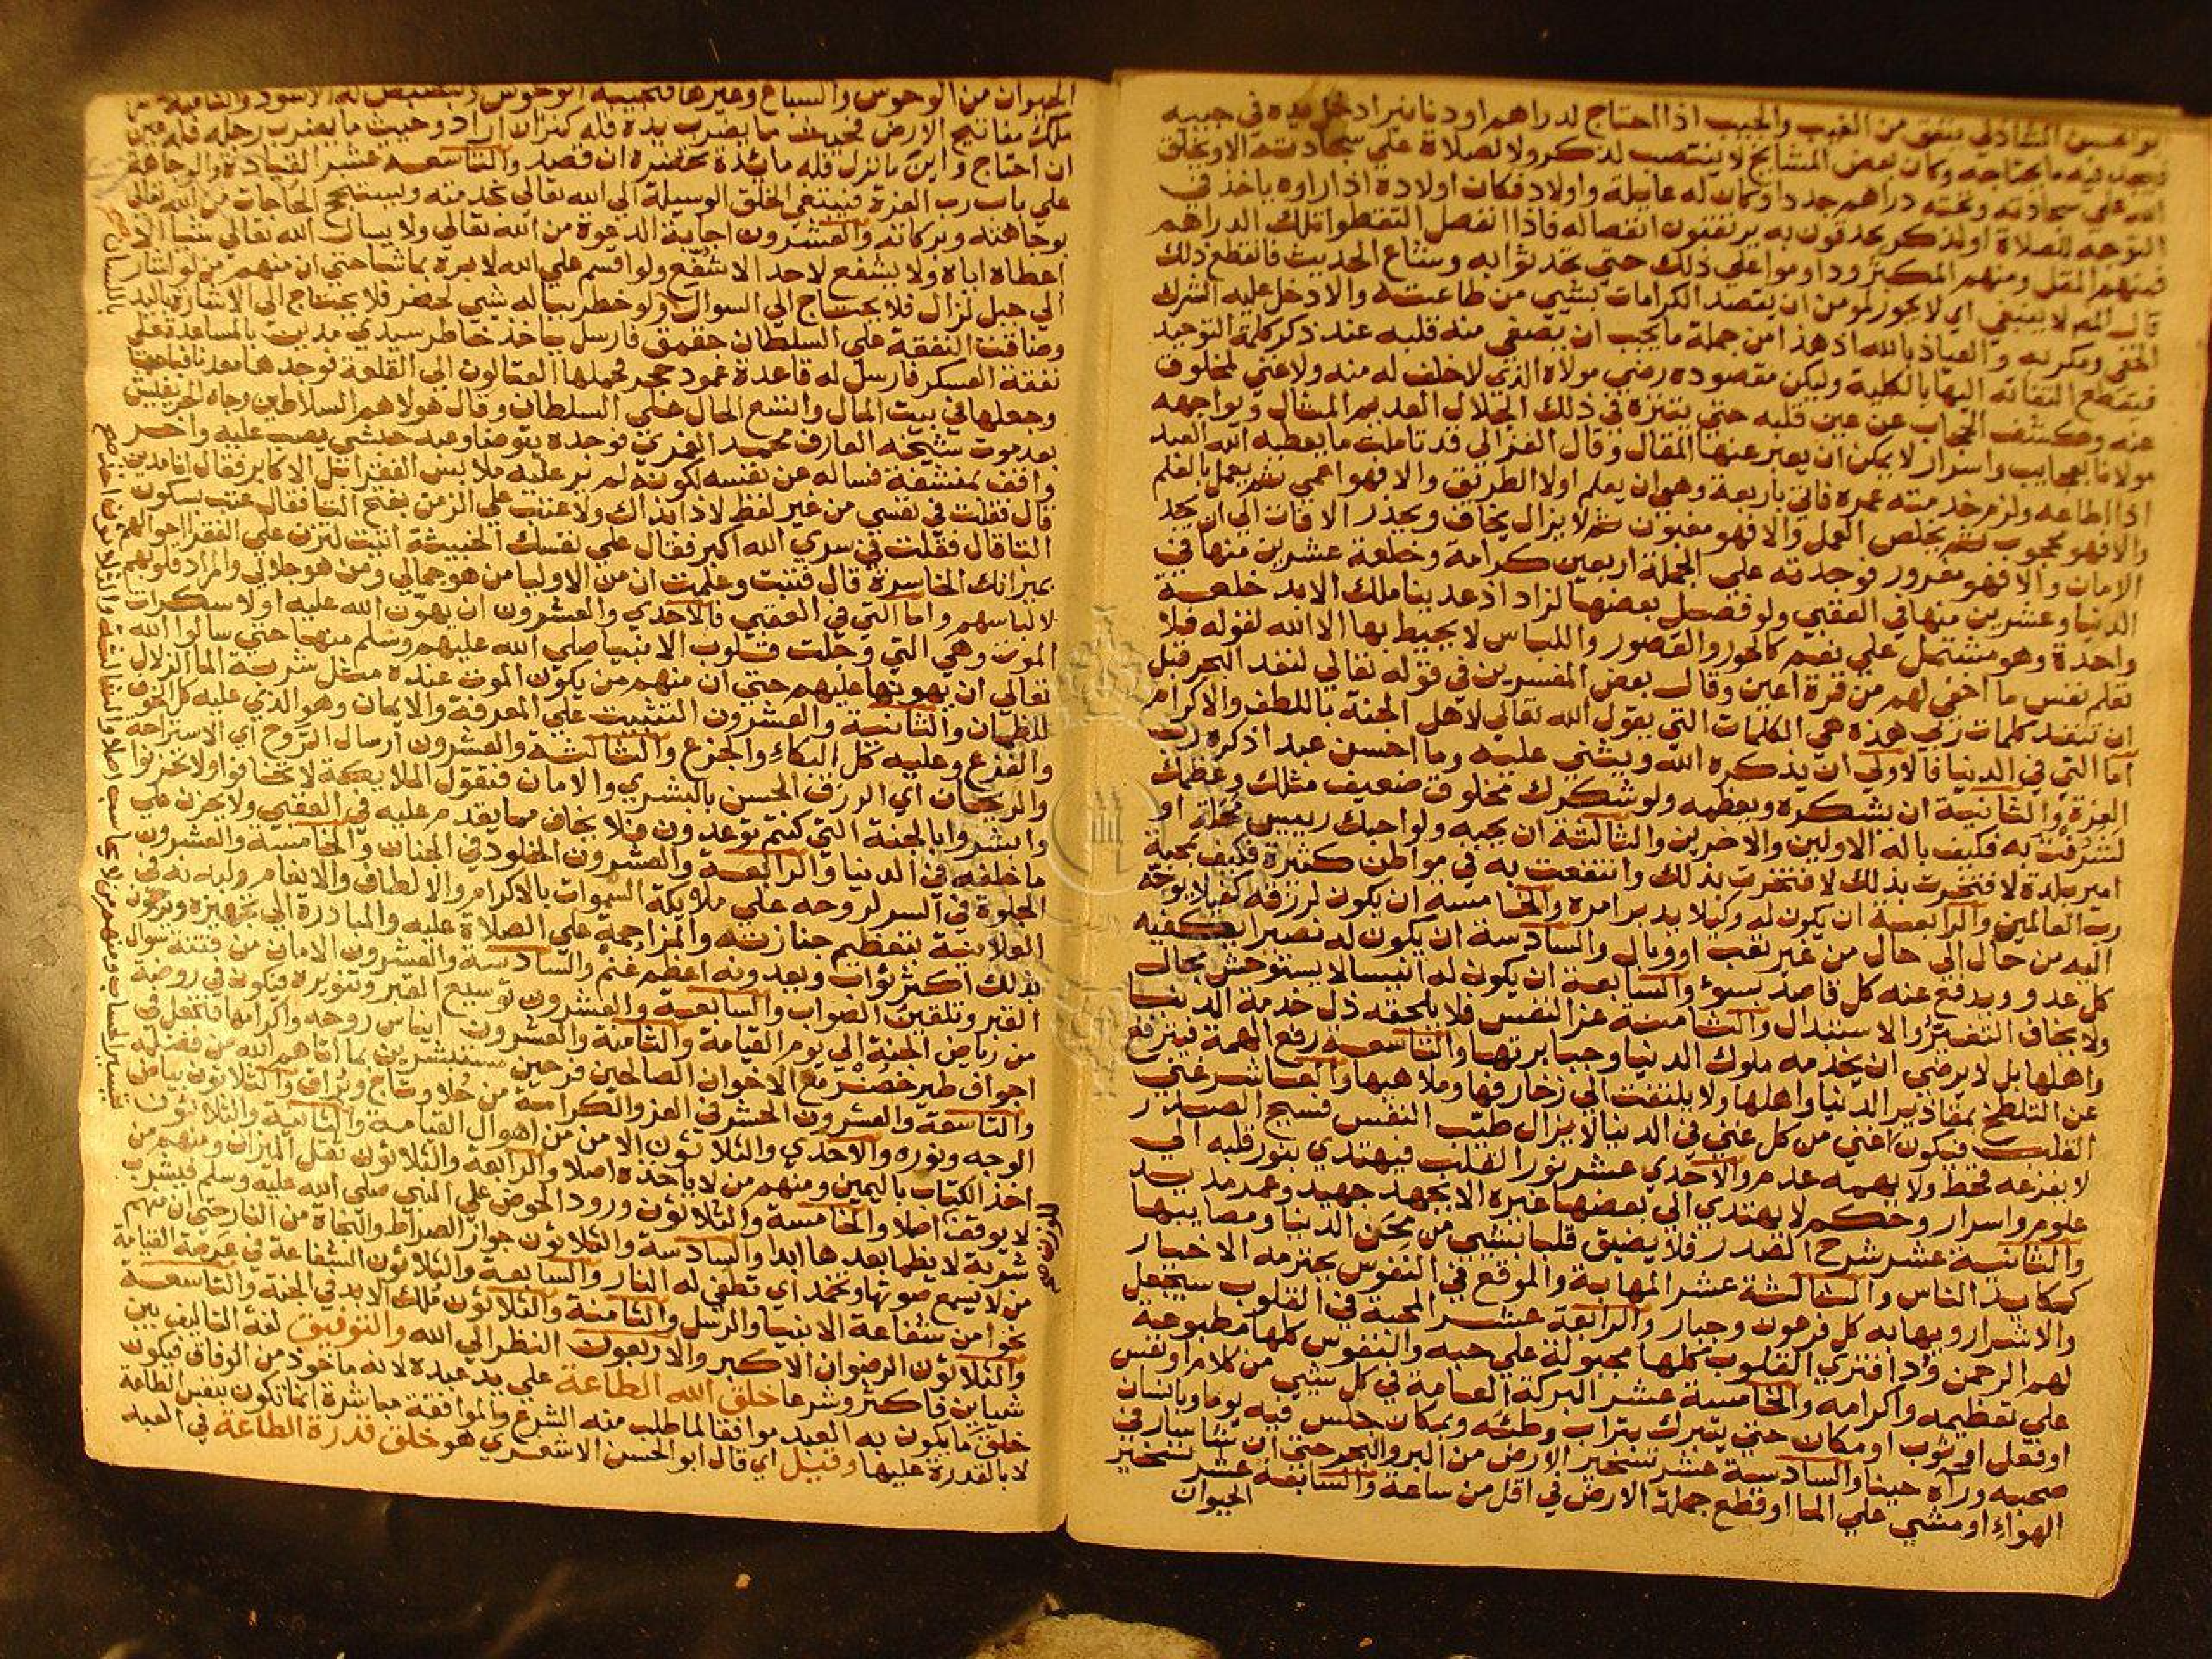 بو الحسن الشاذلي ينفق من الغيب والجيب اذا احتاج لدراهم او دنانير ادخل يده في جيبه
فيجد فيه ما يحتاجه وكان بعض المشايخ لا ينتصب لذكر ولا لصلاة على سجادته الا ويخلق
الله على سجادته وتحته دراهم جددا وكان له عايلة واولاد فكان اولاده اذا راوه ياخذ في
التوجه للصلاة او لذكر يحدقون به يرتقبون انفصاله فاذا انفصل التقطوا تلك الدراهم
فمنهم المقل ومنهم المكثر وداوموا على ذلك حتى تحدثوا به وشاع الحديث فانقطع ذلك
قال لا ينبغي اي لا يجوز لمومن ان يقصد الكرامات بشي من طاعته والا دخل عليه الشرك
الخفي ومكر به والعياذ بالله اذ هذا من جملة ما يجب ان يصفي منه قلبه عند ذكر كلمة التوحيد
فيقطع التفاته اليها بالكلية وليكن مقصوده رضي مولاه الذي لا خلف له منه ولا غني لمخلوق
عنه وكشف الحجاب عن عين قلبه حتى يتنزه في ذلك الجلال العديم المثال ويواجهه
مولانا بعجايب واسرار لا يمكن ان يعبر عنها المقال وقال الغزالي قد تاملت ما يعطيه الله العبد
اذا اطاعه ولزم خدمته عمره فاني باربعة وهي ان يعلم اولا الطريق والا فهو اعمى ثم يعمل بالعلم
والا فهو محجوب ثم يخلص العمل والا فهو مغبون ثم لا يزال يخاف ويحذر الافات الى ان يجد
الامان والا فهو مغرور فوجدته على الجملة اربعين كرامة وخلعة عشرين منها في
الدنيا وعشرين منها في العقبى ولو فصل بعضها لزاد اذ عد بنا ملك الابد خلعة
واحدة وهو مشتمل على نعم كالحور والقصور واللباس لا يحيط بها الا الله لقوله فلا
تعلم نفس ما اخفي لهم من قرة اعين وقال بعض المفسرين في قوله تعالى لنفد البحر قبل
ان تنفد كلمات ربي هذه هي الكلمات التي يقول الله تعالى لاهل الجنة باللطف والاكرام
اما التي في الدنيا فالاولى ان يذكره الله ويثني عليه وما احسن عبد اذكره رب
العزة والثانية ان يشكره ويعظمه ولو شكرك مخلوق ضعيف مثلك وعظمك
لشرفت به فكيف باله الاولين والاخرين والثالثة ان يحبه ولو احبك رييس محلة او
امير بلدة لافتخرت بذلك لا فتخرت بذلك وانتفعت به في مواطن كثيرة فكيف بمحبة
رب العالمين والرابعة ان يكون له وكيلا يدبر امره والخامسة ان يكون لرزقه كفيلا يوجه
اليه من حال الى حال من غير تعب او وبال والسادسة ان يكون له نصيرا يكفيه
كل عدو ويدفع عنه كل قاصد بسوء والسابعة ان يكون له انيسا لا يستوحش بحال
ولا يخاف التغير والاستبدال والثامنة عز النفس فلا يلحقه ذل خدمة الدنيا
واهلها بل لا يرضى ان يخدمه ملوك الدنيا وجبابرتها والتاسعة رفع الهمة فيترفع
عن التلطخ بمقاذير الدنيا واهلها ولا يلتفت الى زخارفها وملاهيها والعاشر غني
القلب فيكون اغنى من كل غني في الدنيا لا يزال طيب النفس فسيح الصدر
لا يفزعه قحط ولا يهمه عدم والاحدي عشر نور القلب فيهتدي بنور قلبه الى
علوم واسرار وحكم لا يهتدي الى بعضها غيره الا بجهد جهيد وعمر مديد
والثانية عشر شرح الصدر فلا يضيق قلبا بشي من محن الدنيا ومصايبها
كمكايد الناس والثالثة عشر المهابة والموقع في النفوس يحترمه الاخيار
والاشرار ويهابه كل فرعون وجبار والرابعة عشر المحبة في القلوب سيجعل
لهم الرحمن ودا فترى القلوب كلها مجبولة على حبه والنفوس كلها مطبوعة
على تعظيمه واكرامه والخامسة عشر البركة العامة في كل شي من كلام او نفس
او فعل او ثوب او مكان حتى يتبرك بتراب وطئه وبمكان جلس فيه يوما وبانسان
صحبه ورآه حينا والسادسة عشر تسخير الارض من البر والبحر حتى ان شا سار في
الهواء او مشى على الما او قطع جملة الارض في اقل من ساعة والسابعة عشر تسخير
الحيوان
الحيوان من الوحوش والسباع وغيرها فتجيبه الوحوش وتبصبص له الاسود والثامنة عشر
ملك مفاتيح الارض فحيث ما يضرب يده فله كنز ان اراد وحيث ما يضرب رجله فله عين
ان احتاج واين ما نزل فله مائدة تحضره ان قصد والتاسعة عشر القيادة والوجاهة
على باب رب العزة فيبتغي الخلق الوسيلة الى الله تعالى بخدمته ويستنجح الحاجات من الله تعالى
بوجاهته وبركاته والعشرون اجابة الدعوة من الله تعالى ولا يسال الله تعالى شيا الا
اعطاه اياه ولا يشفع لاحد الا شفع ولو اقسم على الله لابره بما شا حتى ان منهم من لو اشار
الى جبل لزال فلا يحتاج الى السوال ولو خطر بباله شي لحضر فلا يحتاج الى الاشارة باليد
وضاقت النفقة على السلطان جقمق فارسل ياخذ خاطر سيدي مدين بالمساعدة على
نفقة العسكر فارسل له قاعدة عمود حجر فحملها العتالون الى القلعة فوجدها معدنا فباعها
وجعلها في بيت المال واتسع الحال على السلطان وقال هولاهم السلاطين وجاه
بعد موت شيخه العارف محمد الغمري فوجده يتوضا وعبد حبشي يصب عليه واخر
واقف بمنشفة فساله عن نفسه لكونه لم ير عليه ملابس الفقرا مثل الاكابر فقال انا مدين
قال فقلت في نفسي من غير لفظ لا ذا بذاك ولا عتب على الزمن بفتح التا فقال عتب بسكون
التا قال فقلت في سري الله اكبر فقال على نفسك الخبيثة اتيت لتزن على الفقرا احوالهم
بميزانك الخاسرة قال فتبت وعلمت ان من الاوليا من هو جمالي ومن هو جلالي والمراد قلوبهم
لا لباسهم واما التي في العقبى فالاحدي والعشرون ان يهون الله عليه اولا سكرات
الموت وهي التي وجلت قلوب الانبيا صلى الله عليهم وسلم منها حتى سالوا الله
تعالى ان يهونها عليهم حتى ان منهم من يكون الموت عنده مثل شربة الما الزلال
للظمان والثانية والعشرون التثبيت على المعرفة والايمان وهو الذي عليه كل الخوف
والفزع وعليه كل البكاء والجزع والثالثة والعشرون ارسال الروح اي الاستراحة
والريحان اي الرزق الحسن بالبشرى والامان فتقول الملايكة لا تخافوا ولا تحزنوا
وابشروا بالجنة التي كنتم توعدون فلا يخاف مما يقدم عليه في العقبى ولا يحزن على
ما خلفه في الدنيا والرابعة والعشرون الخلود في الجنان والخامسة والعشرون
الجلوة في السر لروحه على ملايكة السموات بالاكرام والالطاف والانعام ولبدنه في
العلانية بتعظيم جنازته والمزاحمة على الصلاة عليه والمبادرة الى تجهيزه ويرجون
بذلك اكثر ثواب ويعدونه اعظم غنم والسادسة والعشرون الامان من فتنة سوال
القبر وتلقين الصواب والسابعة والعشرون توسيع القبر وتنويره فيكون في روضة
من رياض الجنة الى يوم القيامة والثامنة والعشرون ايناس روحه واكرامها فتجعل في
اجواف طير خضر مع الاخوان الصالحين فرحين مستبشرين بما اتاهم الله من فضله
والتاسعة والعشرون الحشر في العز والكرامة من حلا وتاج وبراق والثلاثون بياض
الوجه ونوره والاحدي والثلاثون الامن من اهوال القيامة والثانية والثلاثون
اخذ الكتاب باليمين ومنهم من لا ياخذه اصلا والرابعة والثلاثون ثقل الميزان ومنهم من
لا يوقف اصلا والخامسة والثلاثون ورود الحوض على النبي صلى الله عليه وسلم فيشرب
شربة لا يظما بعدها ابدا والسادسة والثلاثون جواز الصراط والنجاة من النار حتى ان منهم
من لا يسمع صوتها وتخمد اي تطفى له النار والسابعة والثلاثون الشفاعة في عرصة القيامة
نحوا من شفاعة الانبيا والرسل والثامنة والثلاثون ملك الابد في الجنة والتاسعة
والثلاثون الرضوان الاكبر والاربعون النظر الى الله والتوفيق لغة التاليف بين
شياين فاكثر وشرعا خلق الله الطاعة على يد عبده لانه ماخوذ من الوفاق فيكون
خلق ما يكون به العبد موافقا لما طلب منه الشرع والموافقة مباشرة انما تكون بنفس الطاعة
لا بالقدرة عليها وقيل اي قال ابو الحسن الاشعري هو خلق قدرة الطاعة في العبد